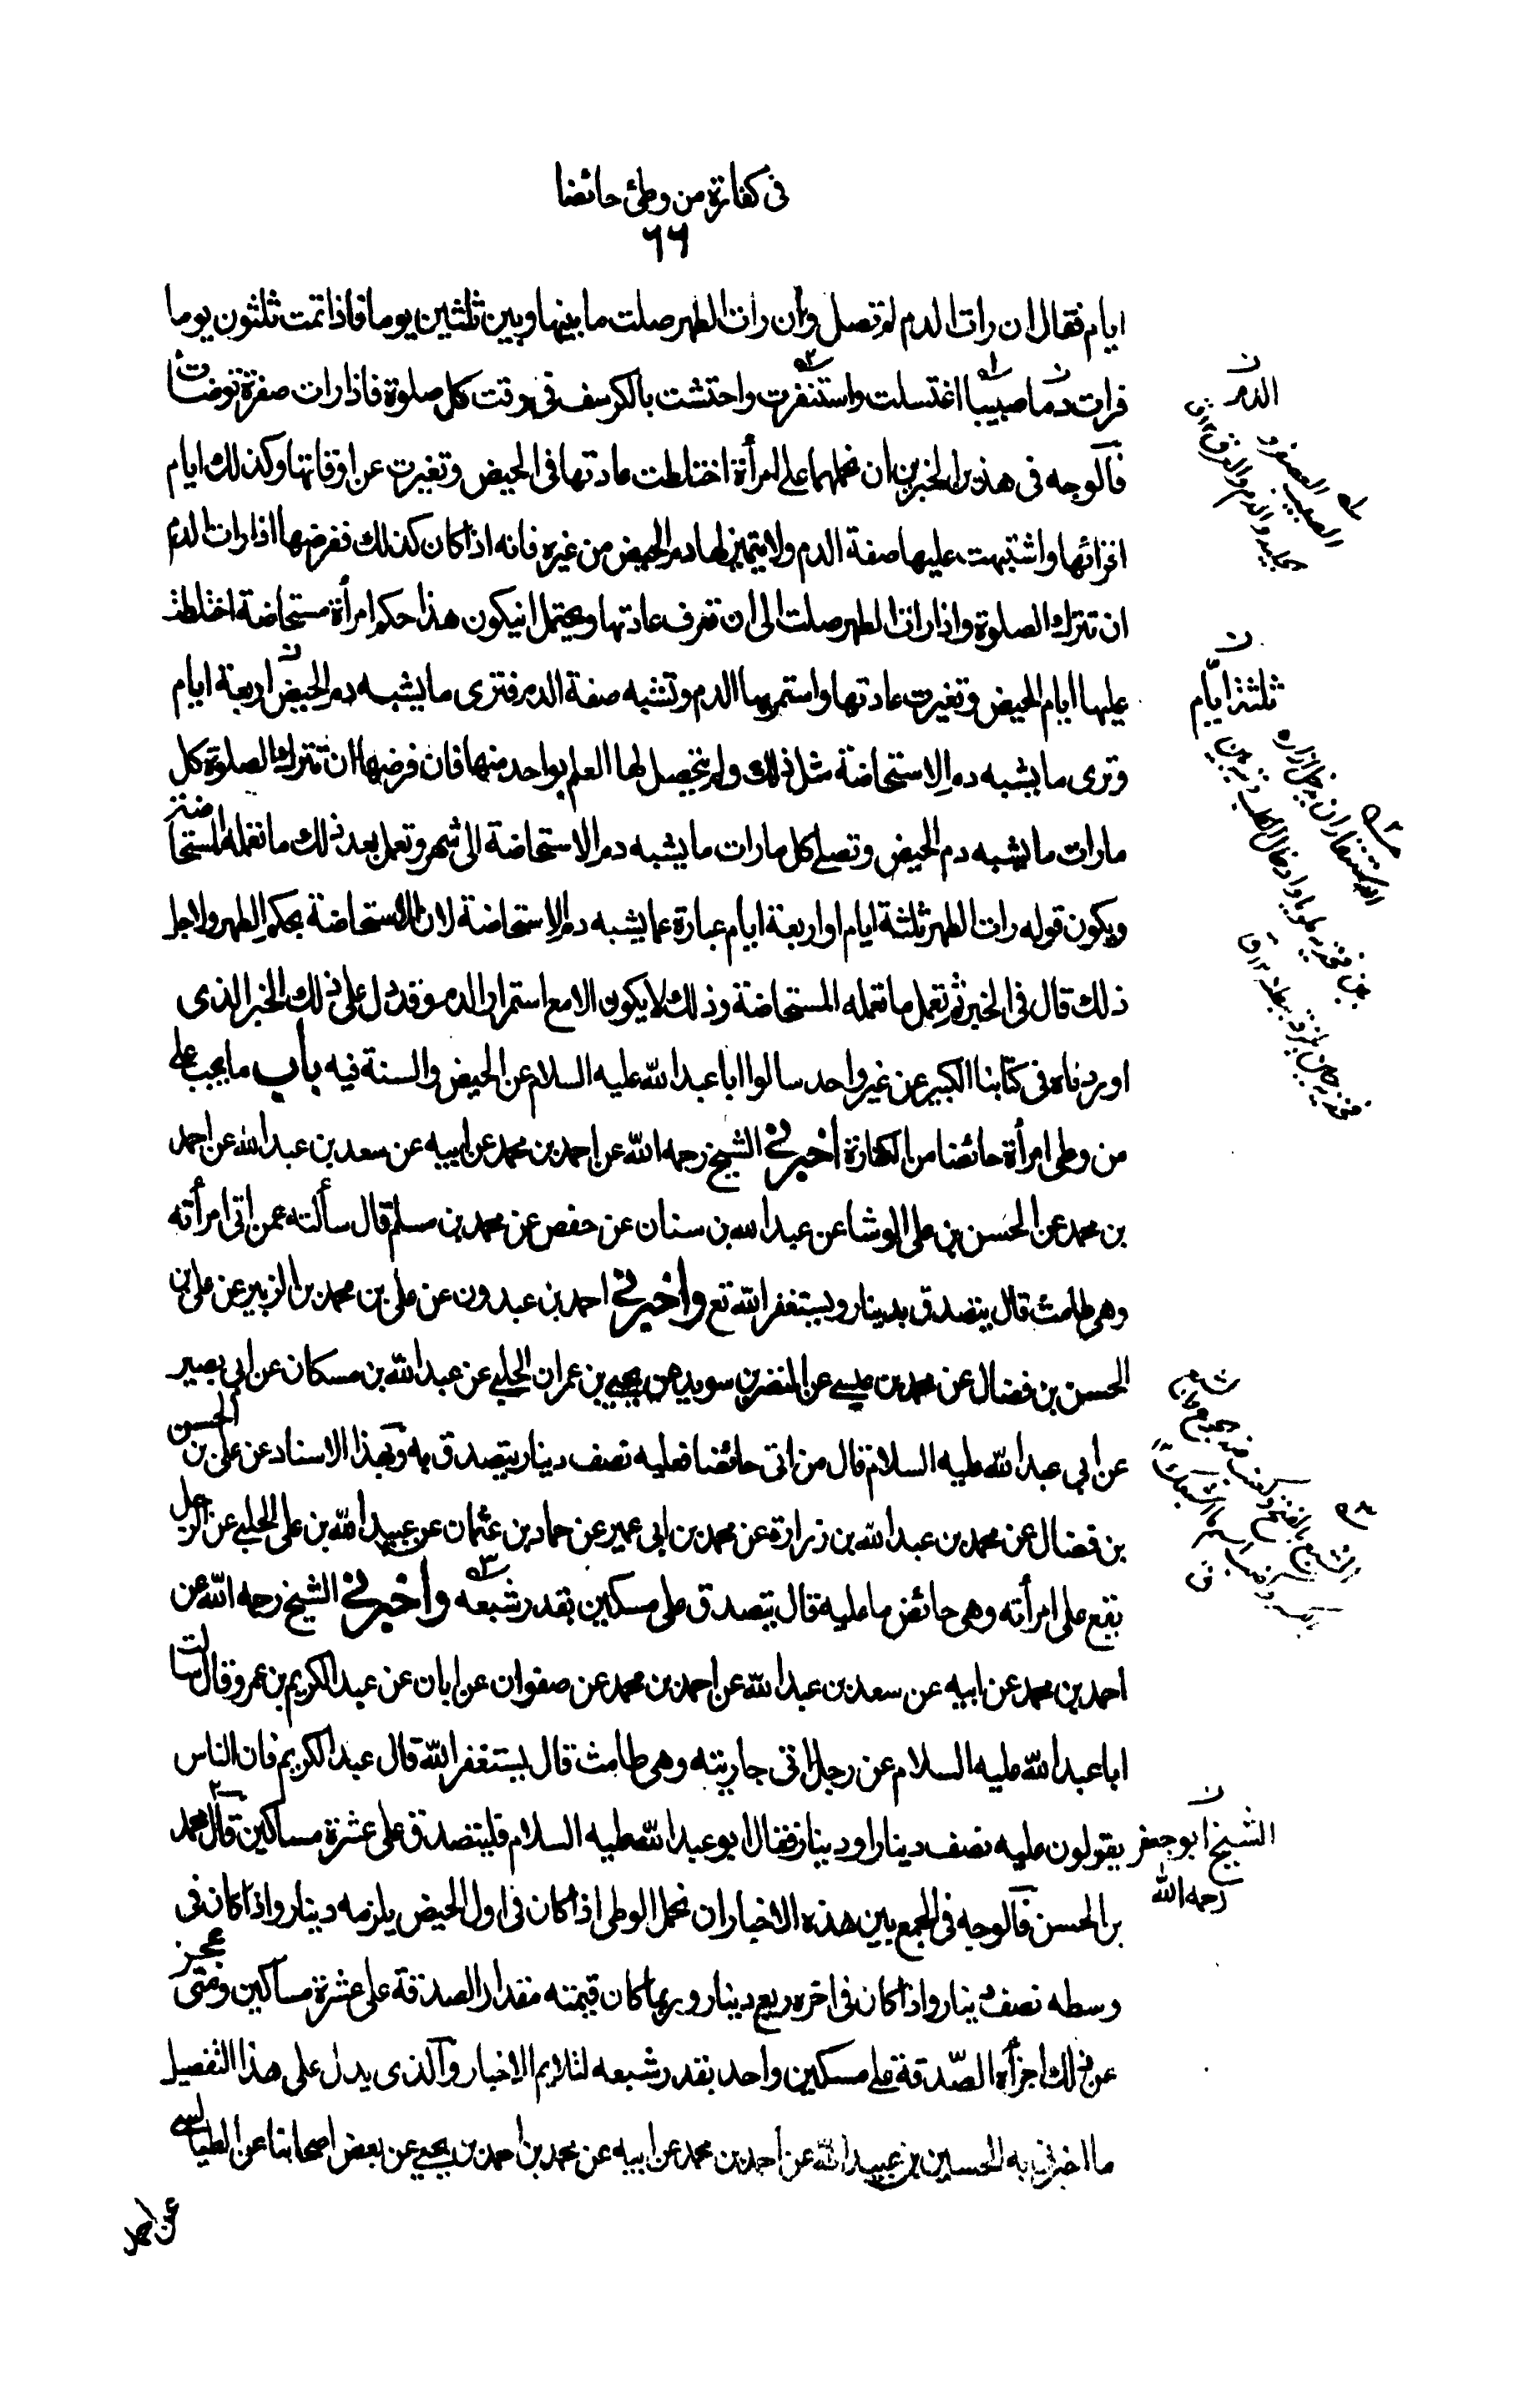 فى كفارة من وطئ حائضا
٦٦
ايام فقال ان رات الدم لم تصل وان رات الطهر صلت ما بينها وبين ثلثين يوما فاذا تمت ثلثون يوما
فرات دما صبيبا اغتسلت واستثفرت واحتشت بالكرسف فى وقت كل صلوة فاذا رات صفرة توضات
فالوجه فى هذين الخبرين ان نحملهما على امرأة اختلطت عادتها فى الحيض وتغيرت عن اوقاتها وكذلك ايام
اقرائها واشتبهت عليها صفة الدم ولا يتميز لها دم الحيض من غيره فانه اذا كان كذلك ففرضها اذا رات الدم
ان تترك الصلوة واذا رات الطهر صلت الى ان تعرف عادتها ويحتمل ان يكون هذا حكم امرأة مستحاضة اختلطت
عليها ايام الحيض وتغيرت عادتها واستمر بها الدم وتشبه صفة الدم فترى ما يشبه دم الحيض اربعة ايام
وترى ما يشبه دم الاستحاضة مثل ذلك ولم يتحصل لها العلم بواحد منهما فان فرضها ان تترك الصلوة كل
ما رات ما يشبه دم الحيض وتصلى كل ما رات ما يشبه دم الاستحاضة الى شهر وتعمل بعد ذلك ما تعمله المستحاضة
ويكون قوله رات الطهر ثلثة ايام او اربعة ايام عبارة عما يشبه دم الاستحاضة لان الاستحاضة بحكم الطهر ولاجل
ذلك قال فى الخبر ثم تعمل ما تعمله المستحاضة وذلك لا يكون الا مع استمرار الدم وقد دل على ذلك الخبر الذى
اوردناه فى كتابنا الكبير عن غير واحد سالوا ابا عبد الله عليه السلام عن الحيض والسنة فيه باب ما يجب على
من وطى امرأة حائضا من الكفارة اخبرنى الشيخ رحمه الله عن احمد بن محمد عن ابيه عن سعد بن عبد الله عن احمد
بن محمد عن الحسن بن على الوشا عن عبد الله بن سنان عن حفص عن محمد بن مسلم قال سألته عمن اتى امرأته
وهى طامث قال يتصدق بدينار ويستغفر الله تع واخبرنى احمد بن عبدون عن على بن محمد بن الزبير عن على بن
الحسن بن فضال عن محمد بن عيسى عن النضر بن سويد عن يحيى بن عمران الحلبى عن عبد الله بن مسكان عن ابى بصير
عن ابى عبد الله عليه السلام قال من اتى حائضا فعليه نصف دينار يتصدق به وبهذا الاسناد عن على بن الحسن
بن فضال عن محمد بن عبد الله بن زرارة عن محمد بن ابى عمير عن حماد بن عثمان عن عبيد الله بن على الحلبى عن الرجل
يقع على امرأته وهى حائض ما عليه قال يتصدق على مسكين بقدر شبعه واخبرنى الشيخ رحمه الله عن
احمد بن محمد عن ابيه عن سعد بن عبد الله عن احمد بن محمد عن صفوان عن ابان عن عبد الكريم بن عمرو قال سالت
ابا عبد الله عليه السلام عن رجل اتى جاريته وهى طامث قال يستغفر الله قال عبد الكريم فان الناس
يقولون عليه نصف دينار او دينار فقال ابو عبد الله عليه السلام فليتصدق على عشرة مساكين قال محمد
بن الحسن فالوجه فى الجمع بين هذه الاخبار ان نحمل الوطى اذا كان فى اول الحيض يلزمه دينار واذا كان فى
وسطه نصف دينار واذا كان فى اخره ربع دينار وربما كان قيمته مقدار الصدقة على عشرة مساكين ومتى عجز
عن ذلك اجزأه الصّدقة على مسكين واحد بقدر شبعه لتلايم الاخبار والذى يدل على هذا التفصيل
ما اخبرنى به الحسين بن عبيد الله عن احمد بن محمد عن ابيه عن محمد بن احمد بن يحيى عن بعض اصحابنا عن الطيالسى
عن احمد
الدم
ثلثة ايّام
الشيخ ابو جعفر
رحمه الله